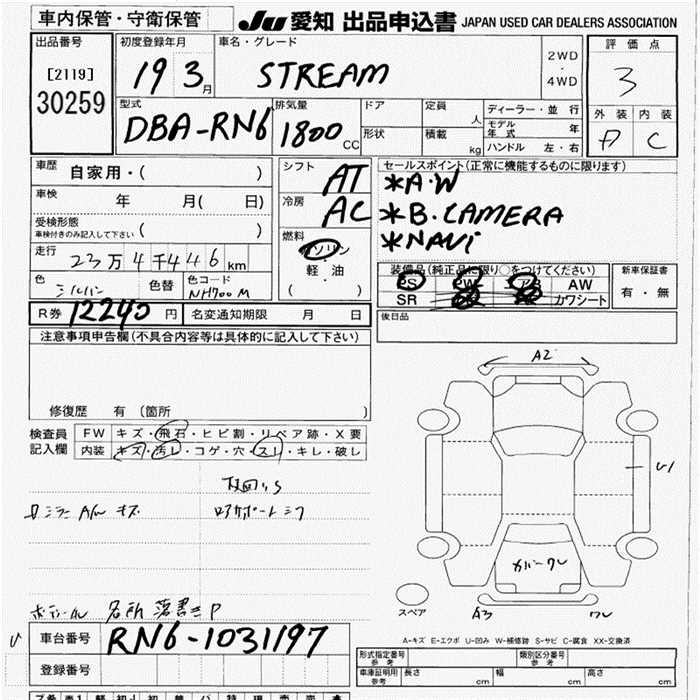 車内保管・守衛保管
JU 愛知 出品申込書 JAPAN USED CAR DEALERS ASSOCIATION
出品番号
[2119]
30259
初度登録年月
19 3月
車名・グレード
STREAM
2WD
・
4WD
評価点
3
外装 内装
C
型式
DBA-RN6
排気量
1800 CC
ドア
形状
定員 人
積載 kg
ディーラー・並行
モデル年式 年
ハンドル 左・右
車歴
自家用・( )
車検
年 月( 日)
受検形態
車検付きのみ記入して下さい ( )
走行
23万4千446km
色
シルバー
色替
色コード
NH700M
シフト
AT
冷房
AC
燃料
ガソリン
軽油
( )
セールスポイント(正常に機能するものに限ります)
*A・W
*B.CAMERA
*NAVi
装備品(純正品に限り○をつけてください)
PS PW AB AW
SR カワシート
新車保証書
有・無
後日品
R券 12240円
名変通知期限 月 日
注意事項申告欄(不具合内容等は具体的に記入して下さい)
修復歴 有(箇所 )
検査員
記入欄
FW キズ・飛石・ヒビ割・リペア跡・X要
内装 キズ・汚レ・コゲ・穴・スレ・キレ・破レ
キズ
A2
U1
カバーワレ
スペア
A3 ワレ
A-キズ E-エクボ U-凹み W-補修跡 S-サビ C-腐食 XX-交換済
車台番号
RN6-1031197
登録番号
形式指定番号
参考
類別区分番号
参考
車庫証明用
参考
長さ cm
幅 cm
高さ cm